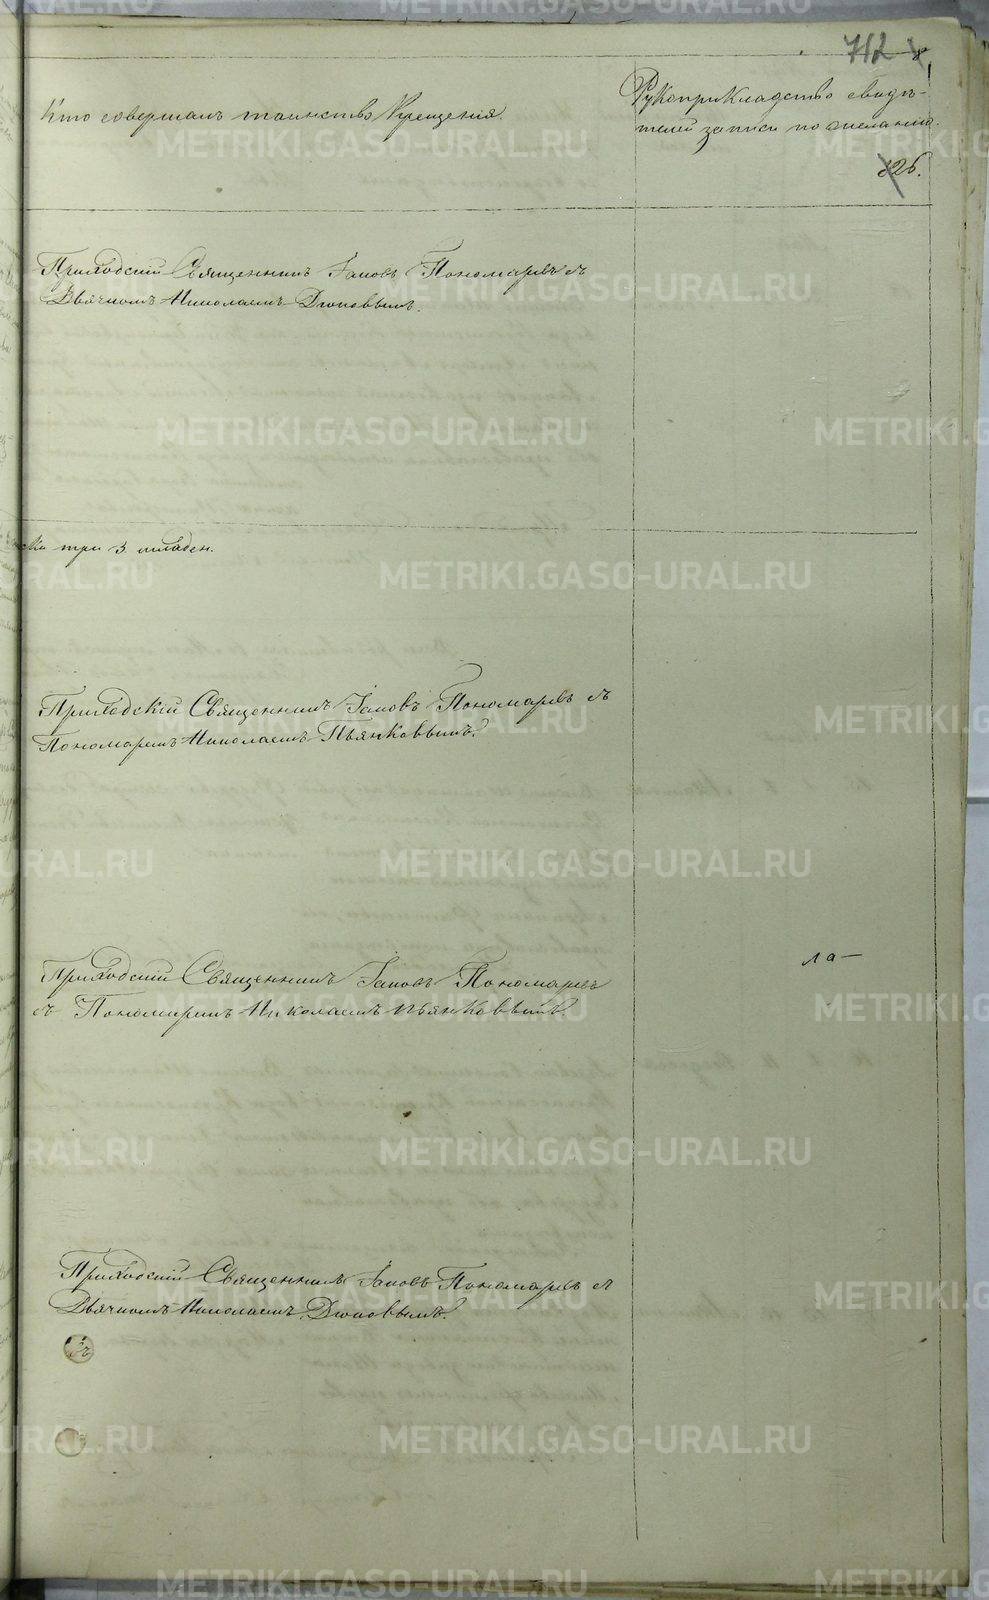 712
Кто совершалъ таинство Крещенія.
Рукоприкладство свидѣ-
телей записи по желанію.
826.
Приходскій Священникъ Іаковъ Пономаревъ съ
Дьячкомъ Николаемъ Дюповымъ.
три 3. младен.
Приходскій Священникъ Іаковъ Пономаревъ съ
Пономаремъ Николаемъ Пьянковымъ.
Приходскій Священникъ Іаковъ Пономаревъ
съ Пономаремъ Николаемъ Пьянковымъ.
ла—
Приходскій Священникъ Іаковъ Пономаревъ съ
Дьячкомъ Николаемъ Дюповымъ.
METRIKI.GASO-URAL.RU